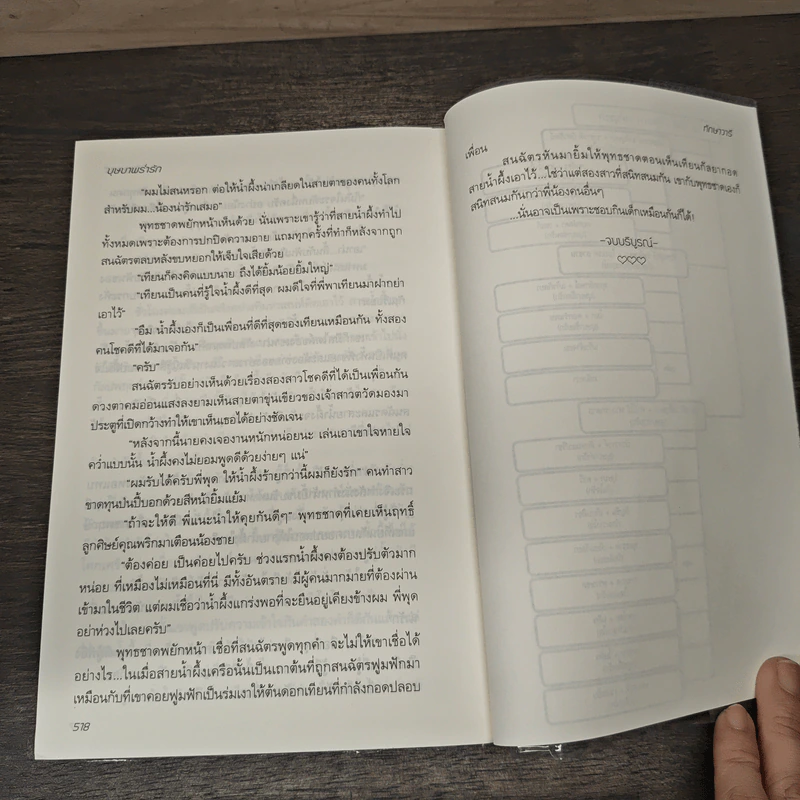 บุษบาพร่ำรัก
"ผมไม่สนหรอก ต่อให้น้ำผึ้งน่าเกลียดในสายตาของคนทั้งโลก
สำหรับผม...น้องน่ารักเสมอ"
พุทธชาดพยักหน้าเห็นด้วย นั่นเพราะเขารู้ว่าที่สายน้ำผึ้งทำไป
ทั้งหมดเพราะต้องการปกปิดความอาย แถมทุกครั้งที่ทำก็หลังจากถูก
สนฉัตรตลบหลังขบหยอกให้เจ็บใจเสียด้วย
"เทียนก็คงคิดแบบนาย ถึงได้ยิ้มน้อยยิ้มใหญ่"
"เทียนเป็นคนที่รู้ใจน้ำผึ้งดีที่สุด ผมดีใจที่พี่พาเทียนมาฝากย่า
เอาไว้"
"อืม น้ำผึ้งเองก็เป็นเพื่อนที่ดีที่สุดของเทียนเหมือนกัน ทั้งสอง
คนโชคดีที่ได้มาเจอกัน"
"ครับ"
สนฉัตรรับอย่างเห็นด้วยเรื่องสองสาวโชคดีที่ได้เป็นเพื่อนกัน
ดวงตาคมอ่อนแสงลงยามเห็นสายตาขุ่นเขียวของเจ้าสาวตวัดมองมา
ประตูที่เปิดกว้างทำให้เขาเห็นเธอได้อย่างชัดเจน
"หลังจากนี้นายคงเจองานหนักหน่อยนะ เล่นเอาเขาใจหายใจ
คว่ำแบบนั้น น้ำผึ้งคงไม่ยอมพูดดีด้วยง่ายๆ แน่"
"ผมรับได้ครับพี่พุด ให้น้ำผึ้งร้ายกว่านี้ผมก็ยังรัก" คนทำสาว
ขาดทุนป่นปี้บอกด้วยสีหน้ายิ้มแย้ม
"ถ้าจะให้ดี พี่แนะนำให้คุยกันดีๆ" พุทธชาดที่เคยเห็นฤทธิ์
ลูกศิษย์คุณพริกมาเตือนน้องชาย
"ต้องค่อย เป็นค่อยไปครับ ช่วงแรกน้ำผึ้งคงต้องปรับตัวมาก
หน่อย ที่เหมืองไม่เหมือนที่นี่ มีทั้งอันตราย มีผู้คนมากมายที่ต้องผ่าน
เข้ามาในชีวิต แต่ผมเชื่อว่าน้ำผึ้งแกร่งพอที่จะยืนอยู่เคียงข้างผม พี่พุด
อย่าห่วงไปเลยครับ"
พุทธชาดพยักหน้า เชื่อที่สนฉัตรพูดทุกคำ จะไม่ให้เขาเชื่อได้
อย่างไร...ในเมื่อสายน้ำผึ้งเครือนั้นเป็นเถาต้นที่ถูกสนฉัตรฟูมฟักมา
เหมือนกับที่เขาคอยฟูมฟักเป็นร่มเงาให้ต้นดอกเทียนที่กำลังกอดปลอบ
578
ทักษาวารี
เพื่อน
สนฉัตรหันมายิ้มให้พุทธชาดตอนเห็นเทียนกัลยากอด
สายน้ำผึ้งเอาไว้...ใช่ว่าแต่สองสาวที่สนิทสนมกัน เขากับพุทธชาดเองก็
สนิทสนมกันกว่าพี่น้องคนอื่นๆ
...นั่นอาจเป็นเพราะชอบกินเด็กเหมือนกันก็ได้!
-จบบริบูรณ์-